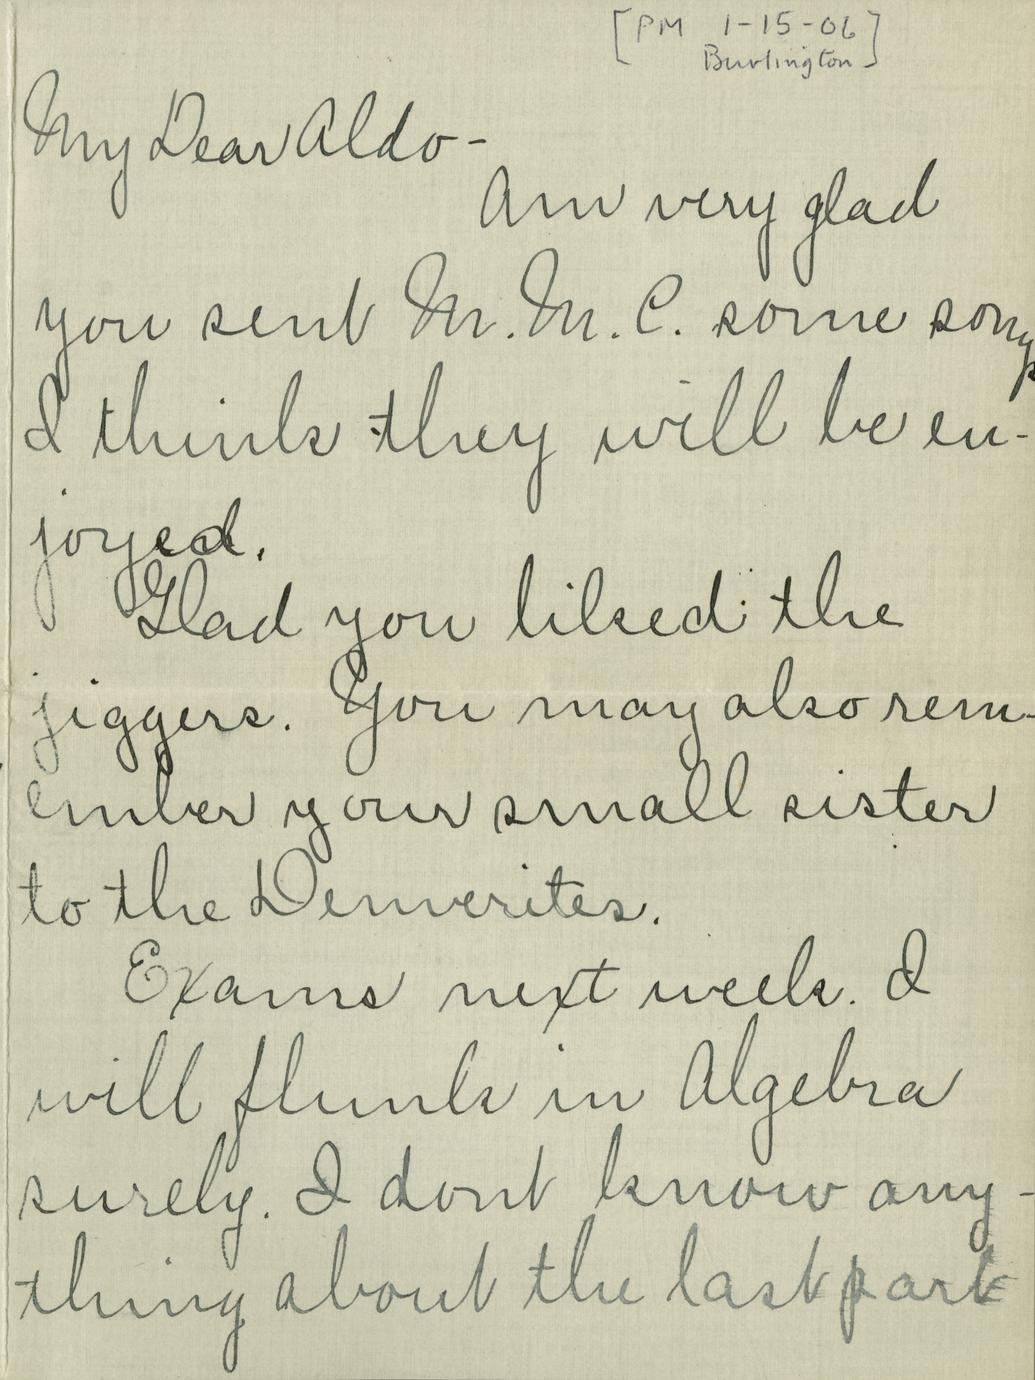 [PM 1-15-06]
Burlington
My Dear Aldo-
Am very glad
you sent M. M. C. some songs
I think they will be en-
joyed.
Glad you liked the
jiggers. You may also rem-
ember your small sister
to the Denverites.
Exams next week. I
will flunk in Algebra
surely. I dont know any-
thing about the last part